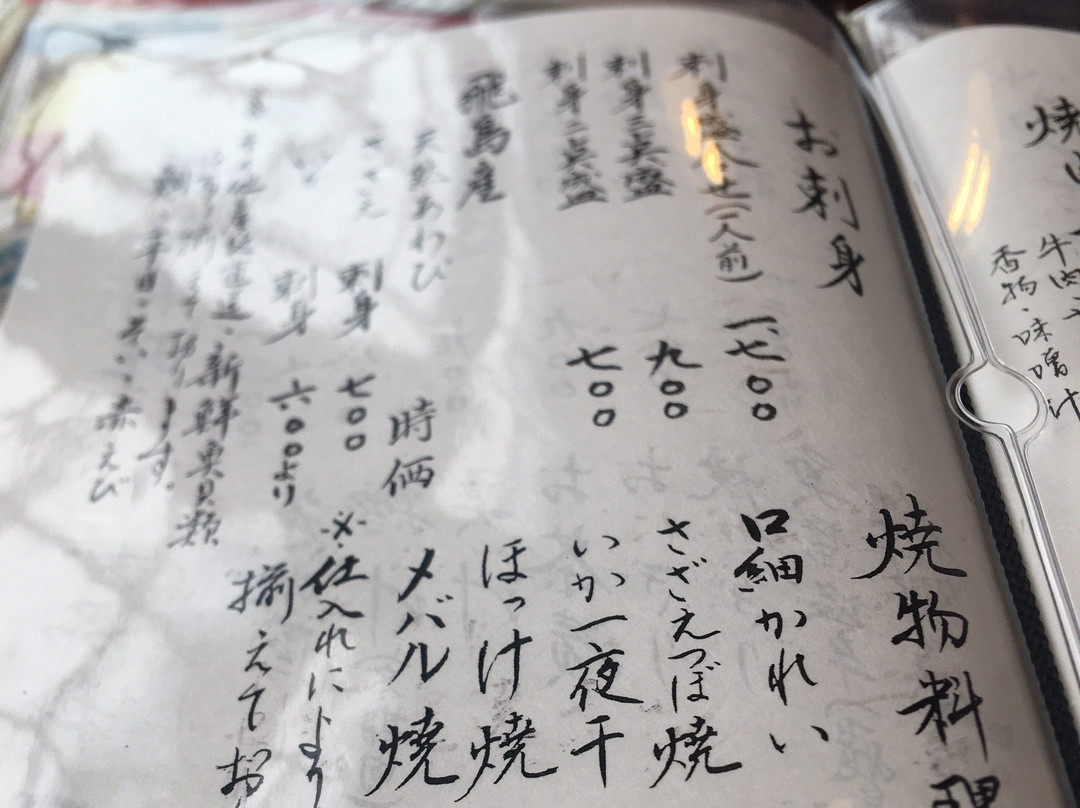 焼
牛肉
香物・味噌汁
お刺身
刺身盛合せ(一人前) 一、七〇〇
刺身三点盛 九〇〇
刺身二点盛 七〇〇
飛島産
天然あわび 時価
さざえ 刺身 七〇〇
刺身 六〇〇より
地産直送・新鮮貝類
ます。
赤えび
焼物料理
口細かれい
さざえつぼ焼
いか一夜干
ほっけ焼
メバル焼
※仕入れにより
揃えてお